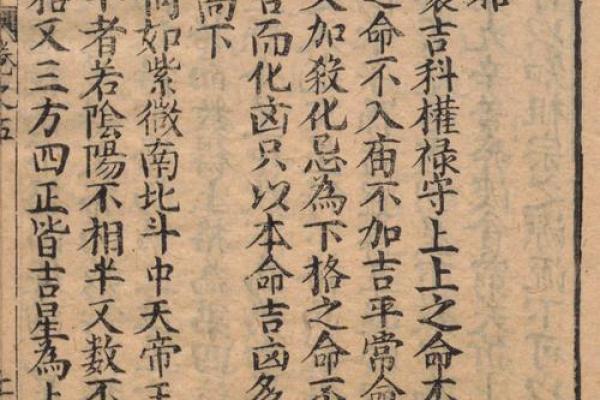 邪
吉科權祿守上上之命不
之命不入庙不加吉平常命
又加殺化忌為下格之命
而化㐫只以本命吉㐫多
高下
何如紫微南北斗中天帝王
者若陰陽不相半又數不
格又三方四正皆吉星為上
卷之五